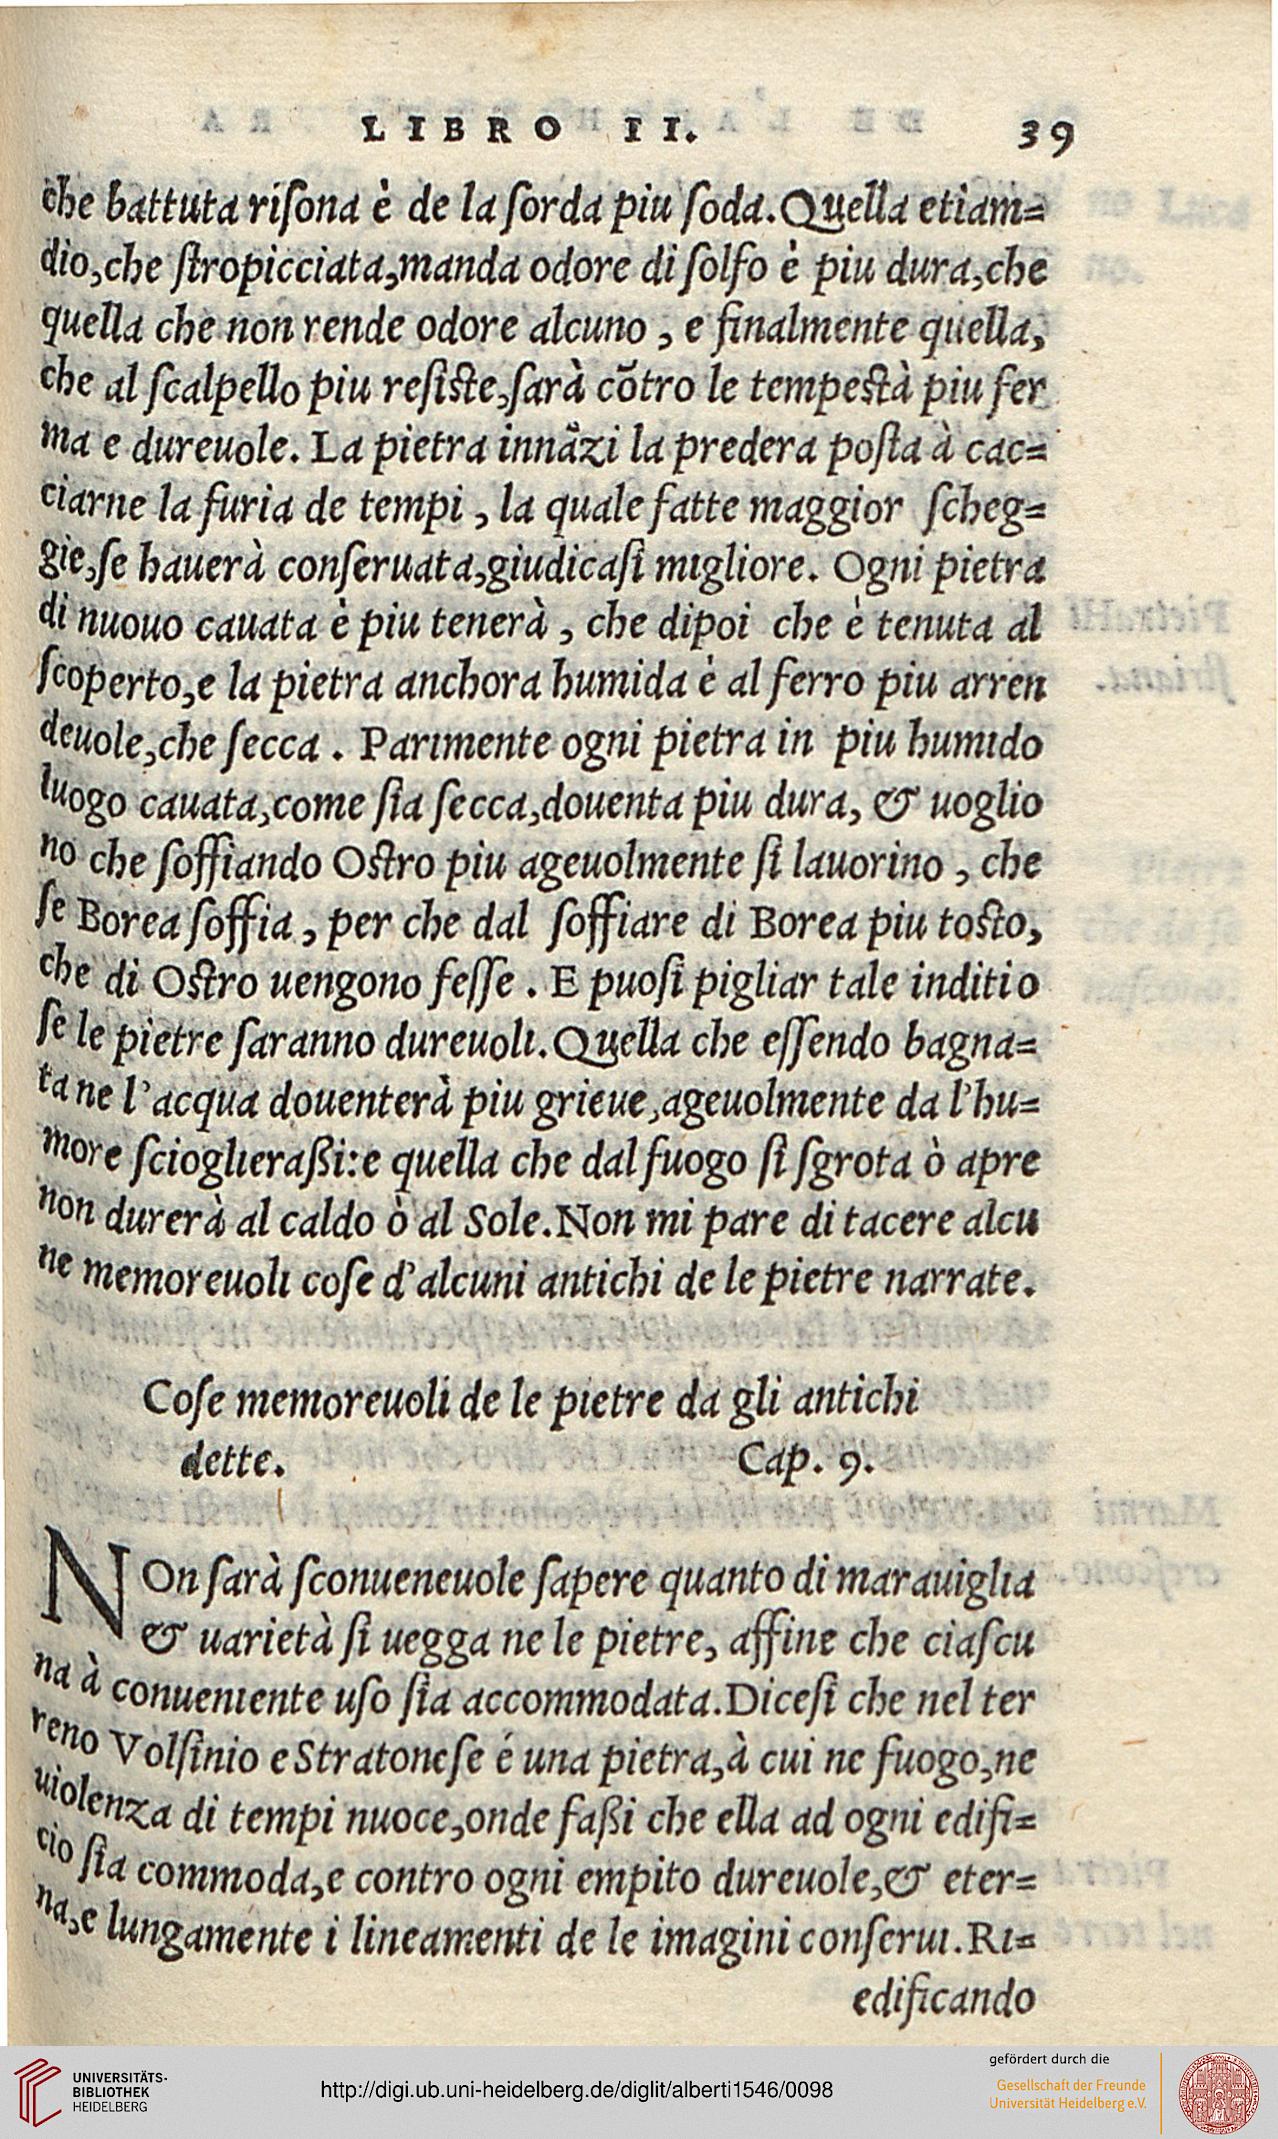 LIBRO II. 39
che battuta risona è de la sorda piu soda. Quella etiam=
dio, che stropicciata, manda odore di solfo è piu dura, che
quella che non rende odore alcuno , e finalmente quella,
che al scalpello piu resiste, sarà cõtro le tempestà piu fer
ma e dureuole. La pietra innãzi la predera posta à cac=
ciarne la furia de tempi , la quale fatte maggior scheg=
gie, se hauerà conseruata, giudicasi migliore. Ogni pietra
di nuouo cauata è piu tenerà , che dipoi che è tenuta al
scoperto, e la pietra anchora humida è al ferro piu arren
deuole, che secca . Parimente ogni pietra in piu humido
luogo cauata, come sia secca, douenta piu dura, & uoglio
no che soffiando Ostro piu ageuolmente si lauorino , che
se Borea soffia , per che dal soffiare di Borea piu tosto,
che di Ostro uengono fesse . E puosi pigliar tale inditio
se le pietre saranno dureuoli. Quella che essendo bagna=
ta ne l'acqua douenterà piu grieue, ageuolmente da l'hu=
more scioglieraßi: e quella che dal fuogo si sgrota ò apre
non durerà al caldo ò al Sole. Non mi pare di tacere alcu
ne memoreuoli cose d'alcuni antichi de le pietre narrate.
Cose memoreuoli de le pietre da gli antichi
dette. Cap. 9.
NOn sarà sconueneuole sapere quanto di marauiglia
& uarietà si uegga ne le pietre, affine che ciascu
na à conueniente uso sia accommodata. Dicesi che nel ter
reno Volsinio e Stratonese é una pietra, à cui ne fuogo, ne
uiolenza di tempi nuoce, onde faßi che ella ad ogni edifi=
cio sia commoda, e contro ogni empito dureuole, & eter=
na, e lungamente i lineamenti de le imagini conserui. Ri=
edificando
UNIVERSITÄTS-
BIBLIOTHEK
HEIDELBERG
http://digi.ub.uni-heidelberg.de/diglit/alberti1546/0098
gefördert durch die
Gesellschaft der Freunde
Universität Heidelberg e.V.